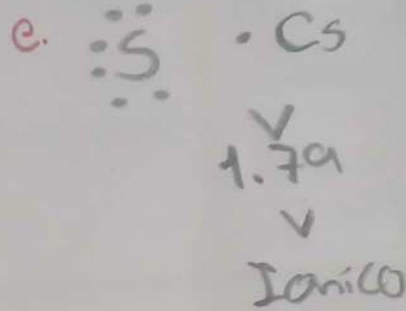 e. S · Cs
V
1.79
V
Ionico